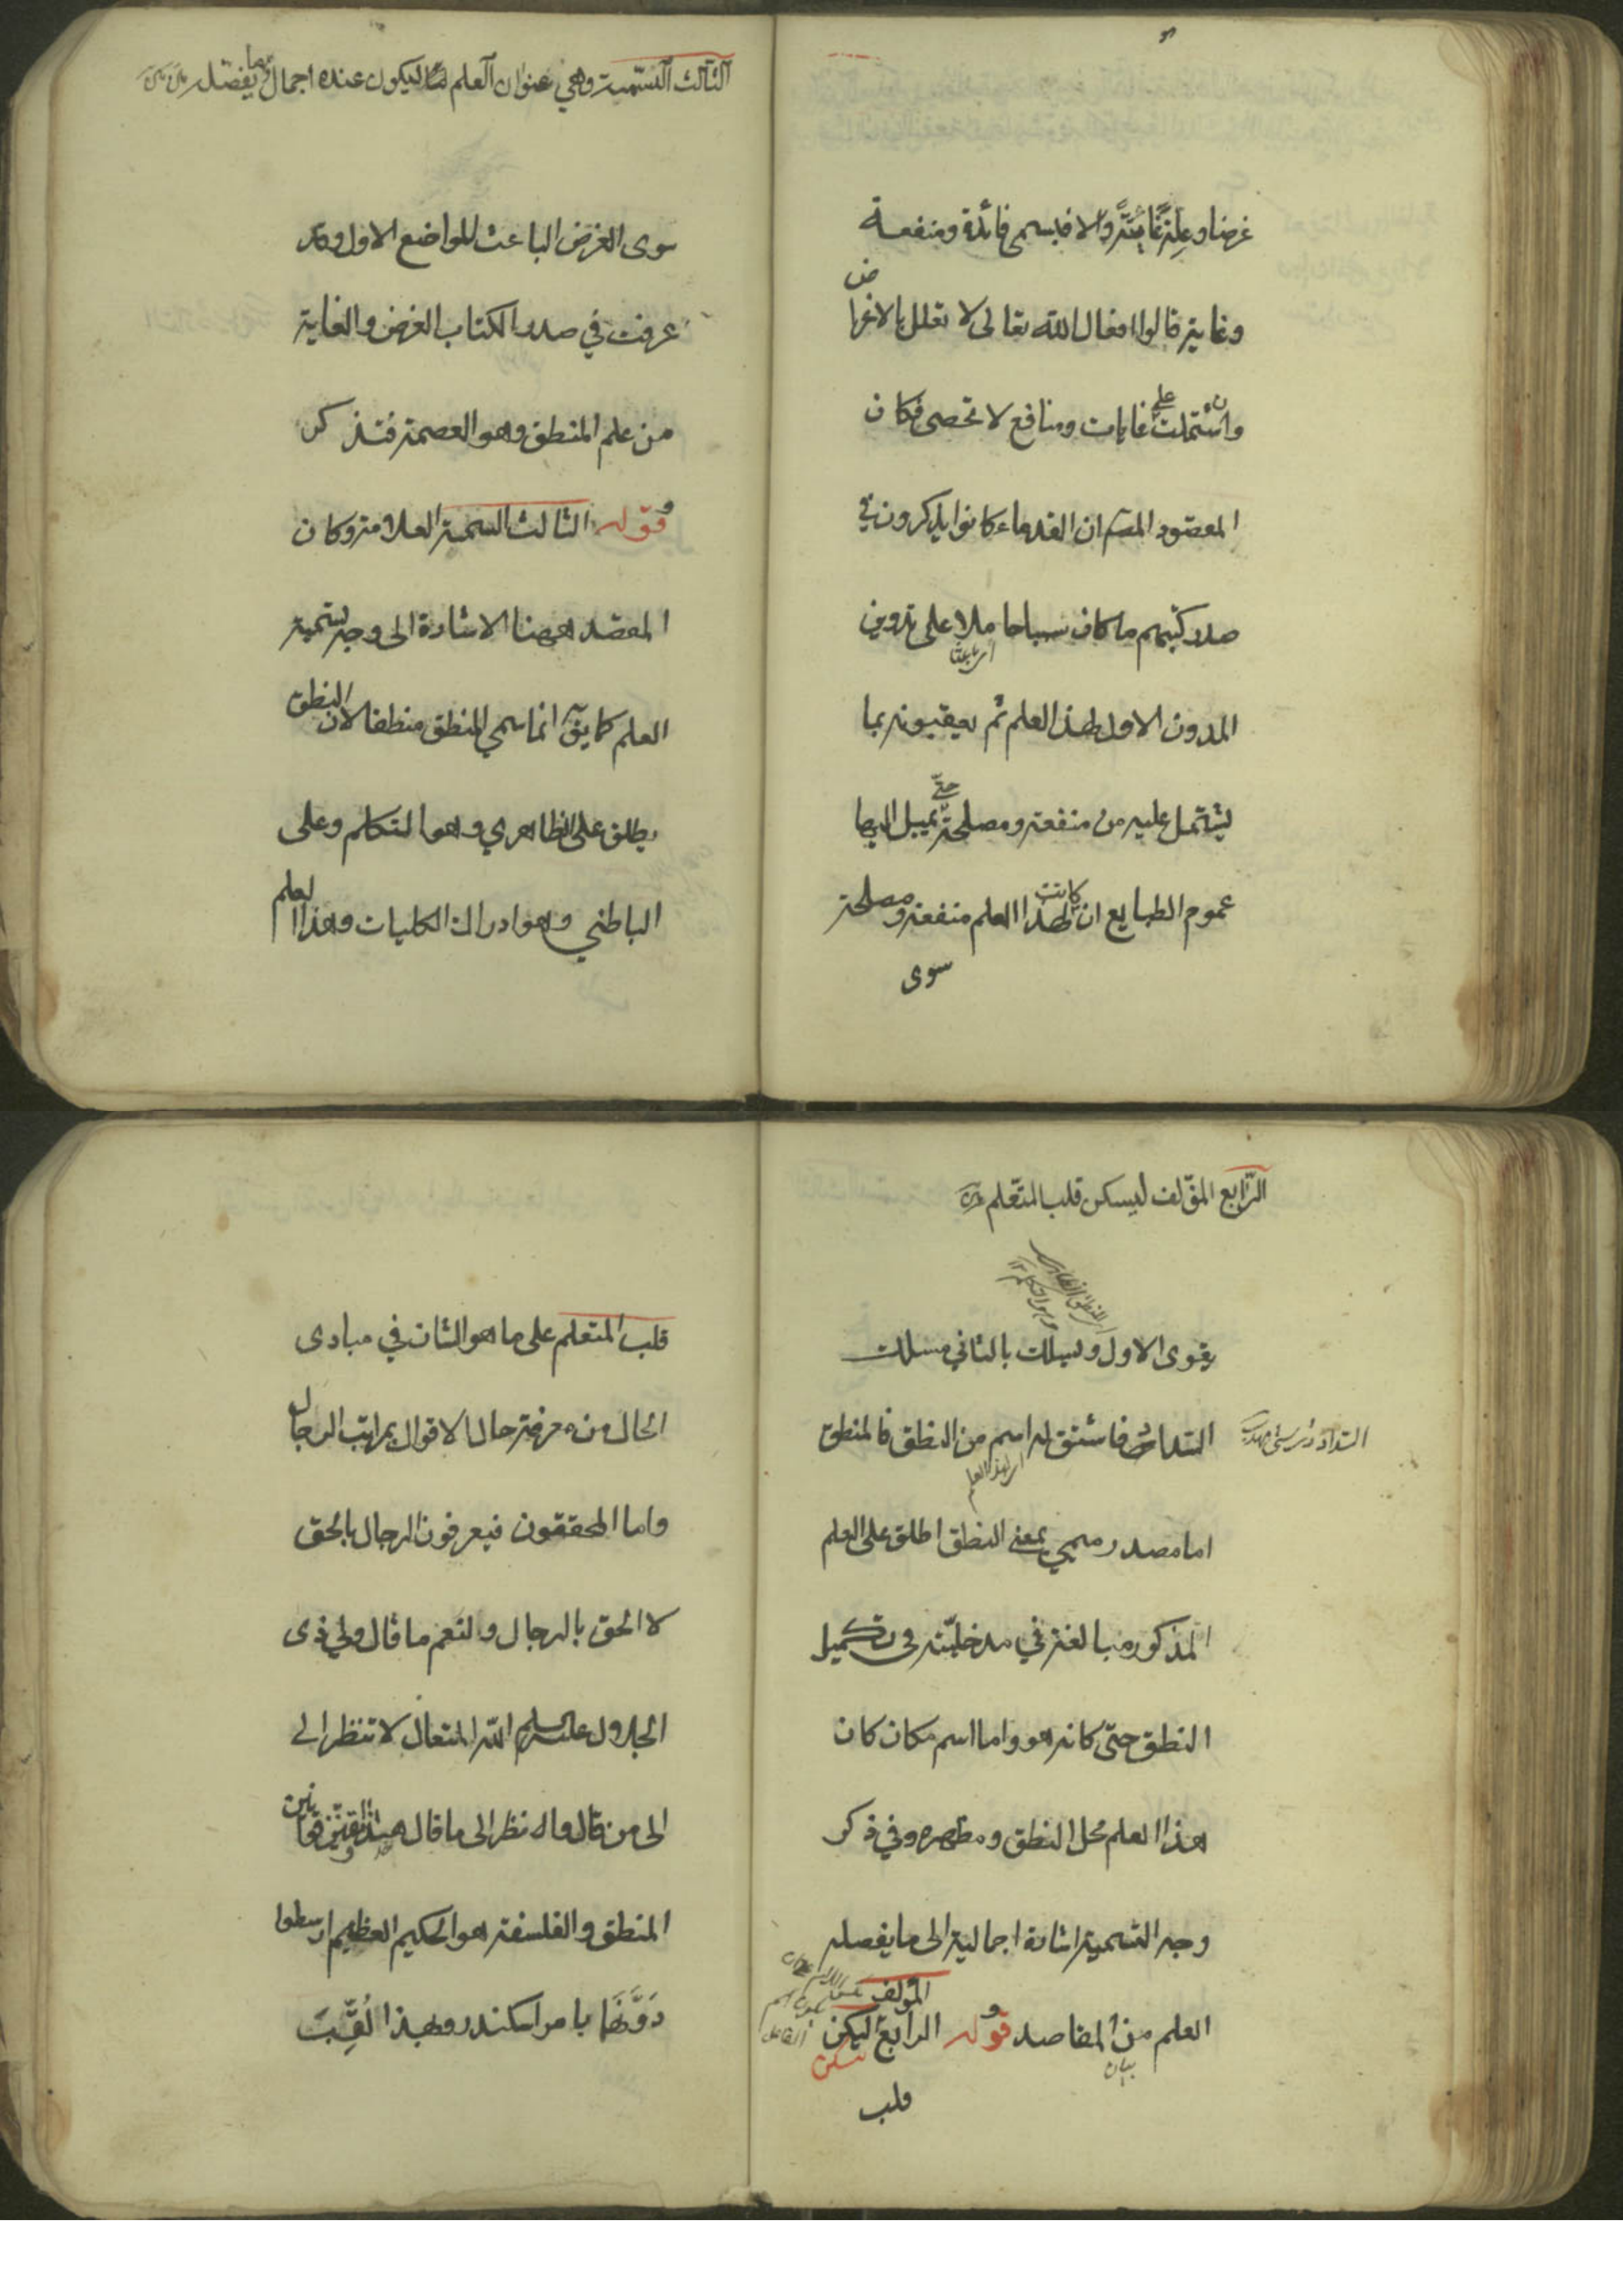 غرضا وعلة غائية والا فيسمى فائدة ومنفعة
وغاية قالوا افعال الله تعالى لا تعلل بالاغراض
وان اشتملت على غايات ومنافع لا تحصى فكان
المقصود المصـ ان القدماء كانوا يذكرون في
صدر كتبهم ما كان سببا حاملا على تدوين
اى باعثا
المدون الاول لهذا العلم ثم يعقبونه بما
يشتمل عليه من منفعة ومصلحة حتى يميل اليها
عموم الطبايع ان كانت لهذا العلم منفعة ومصلحة
سوى
الثالث التسمية وهي عنوان العلم ليكون عنده اجمال ما يفصله
سوى الغرض الباعث للواضع الاول وقد
عرفت في صدر الكتاب الغرض والغاية
من علم المنطق وهو العصمة فتذكر
قوله الثالث السمة العلامة وكان
المقصد ههنا الاشارة الى وجه تسمية
العلم كما يق انما سمي المنطق منطقا لان النطق
يطلق على الظاهري وهو التكلم وعلى
الباطني وهو ادراك الكليات وهذا العلم
الرابع المؤلف ليسكن قلب المتعلم
اى المنطق الظاهرى
وهو التكلم ١٢
يقوى الاول ويسلك بالثاني مسلك
السداد فاشتق له اسم من النطق فالمنطق
اى لهذا العلم
اما مصدر ميمي بمعنى النطق اطلق على العلم
المذكور مبالغة في مدخليته في تكميل
النطق حتى كانه هو واما اسم مكان كان
هذا العلم محل النطق ومظهره وفي ذكر
وجه التسمية اشارة اجمالية الى ما يفصله
العلم من المقاصد قوله الرابع المؤلف ليكن
بيان
ليسكن
قلب
قلب المتعلم على ما هو الشان في مبادى
الحال من معرفة حال الاقوال بمراتب الرجال
واما المحققون فيعرفون الرجال بالحق
لا الحق بالرجال ولنعم ما قال ولي ذى
الجلال عليه سلم الله المتعال لا تنظر الى
الى من قال وانظر الى ما قال هذا ومقنن قوانين
المنطق والفلسفة هو الحكيم العظيم ارسطوا
دَوَّنَهَا بامر اسكندر ولهذا لُقِّبَ